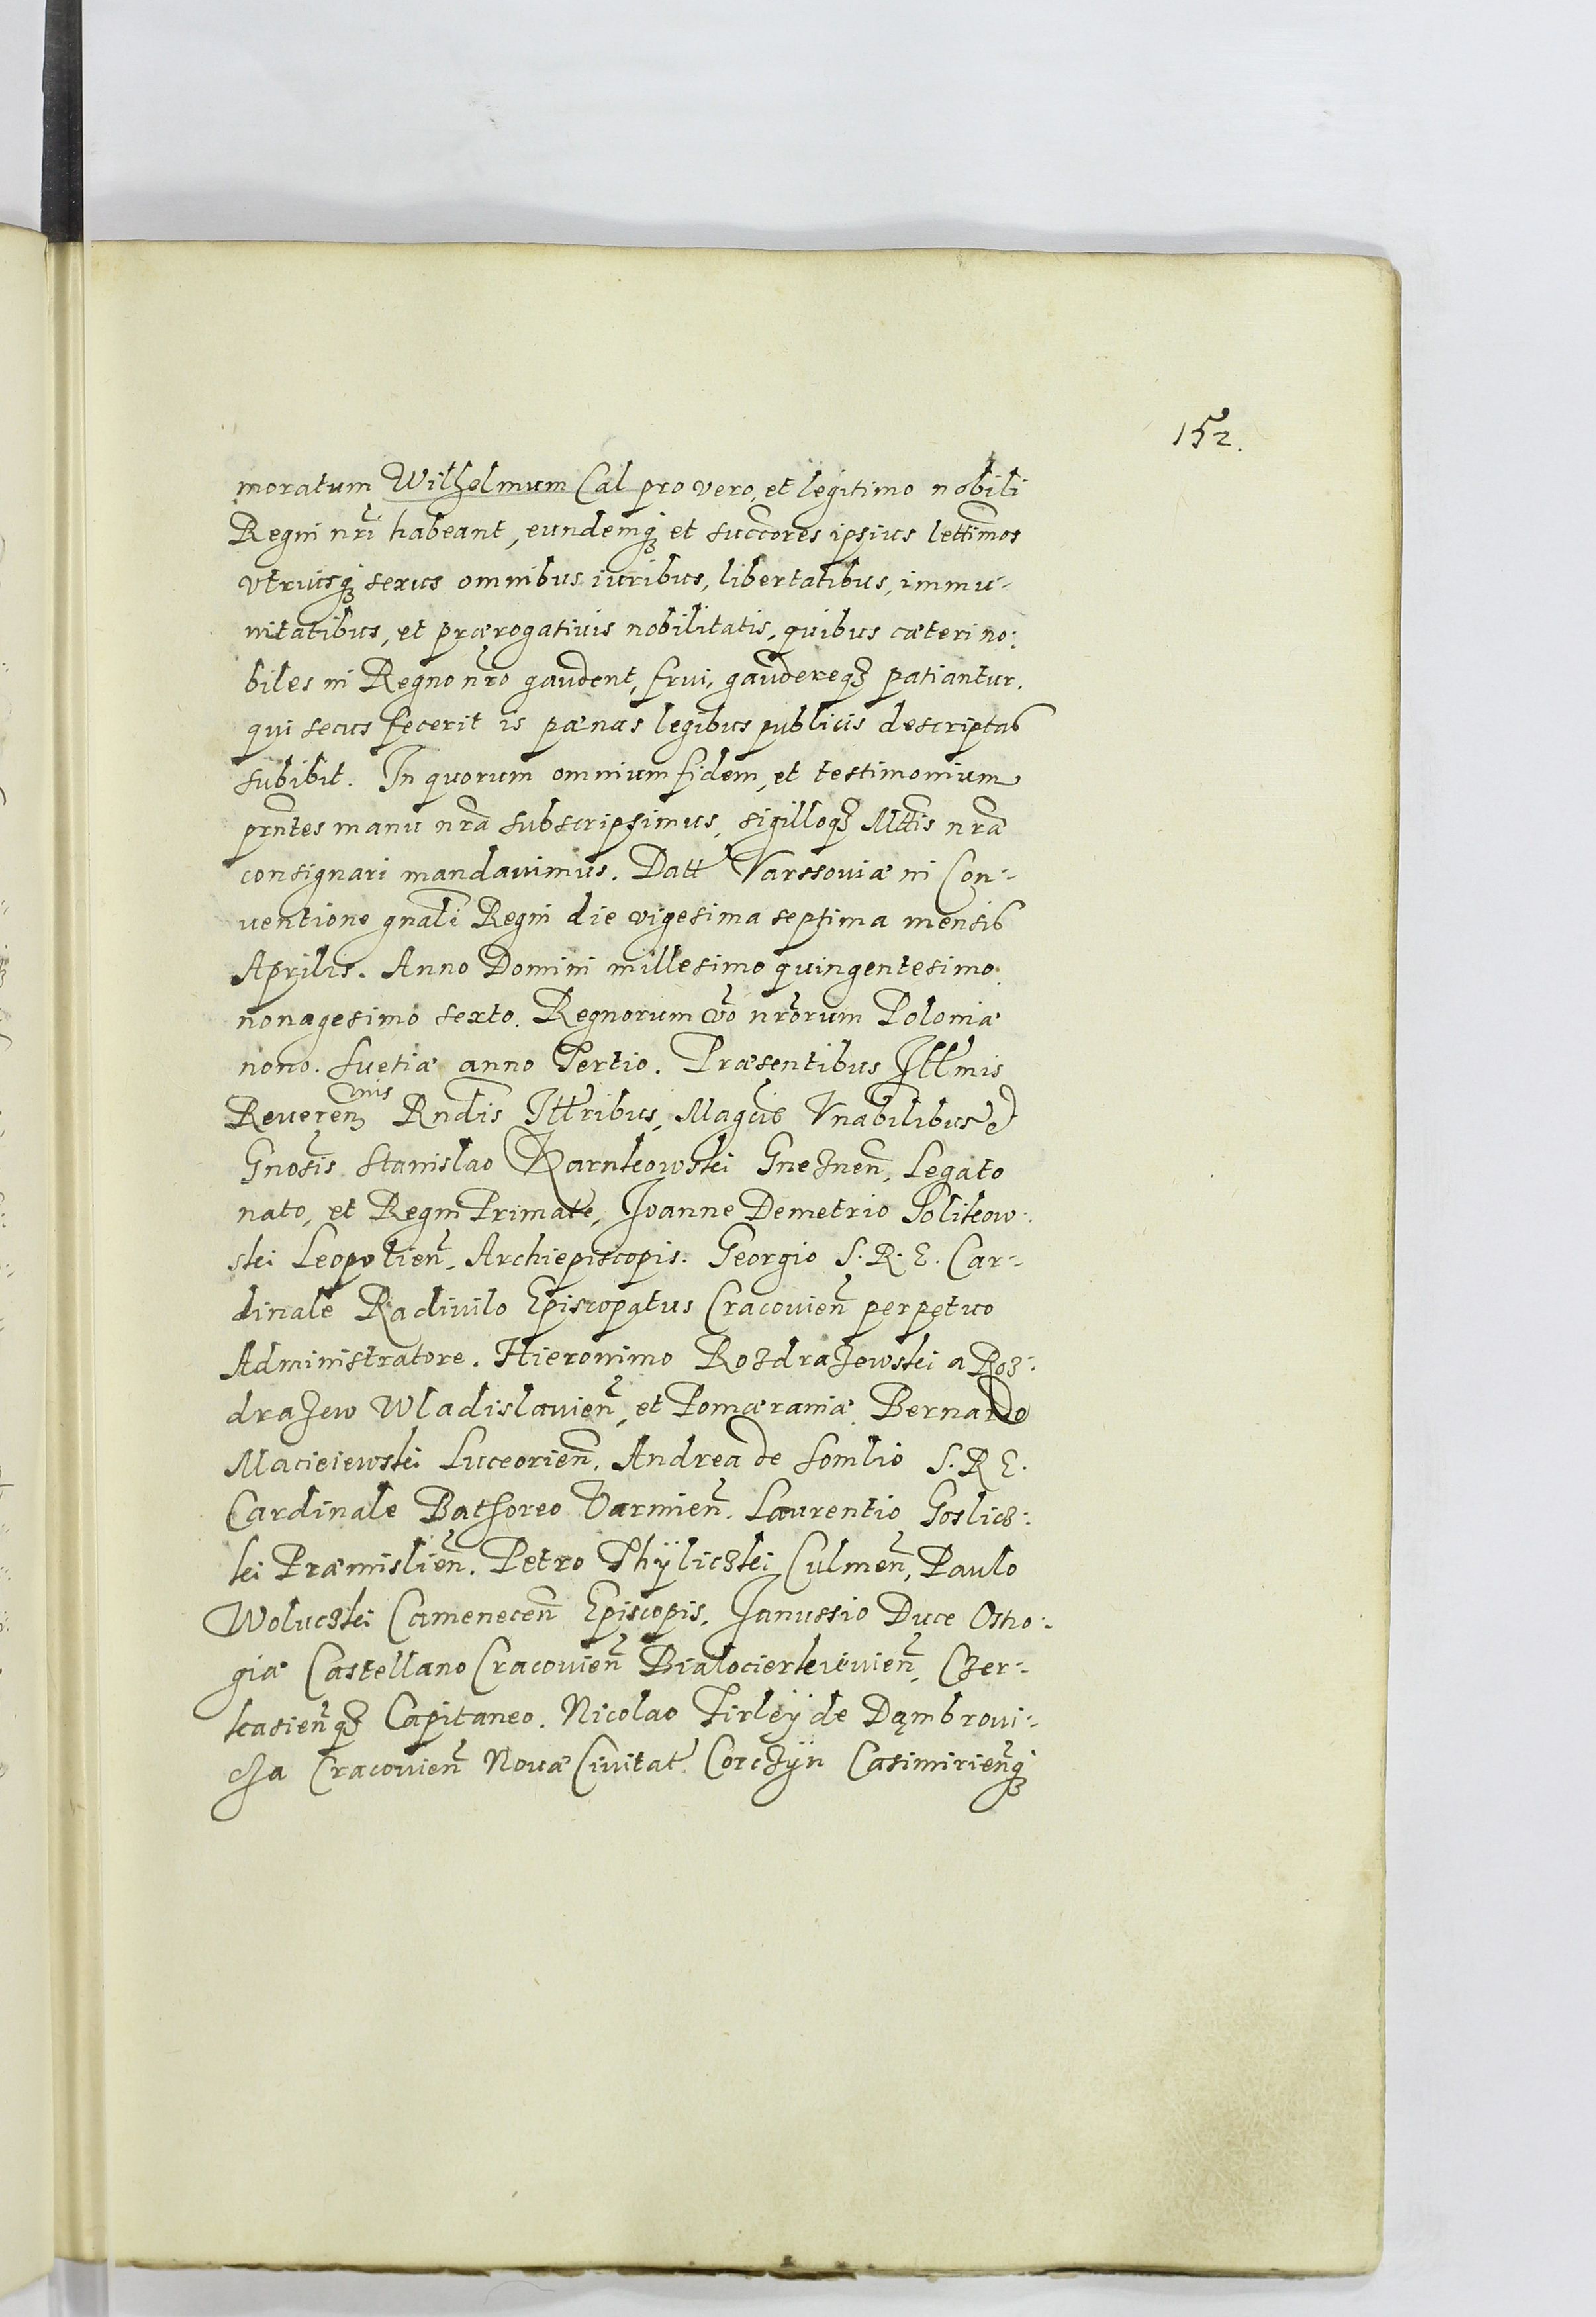 152.
moratum Wilhelmum Cal pro vero, et legitimo nobili
Regni nr̃i habeant, eundemq3 et succ̃ores ipsius lettimos
vtriusq3 sexus omnibus iuribus, libertatibus, immu-
nitatibus, et prærogatiuis nobilitatis, quibus cæteri no:
biles in Regno nr̃o gaudent, frui, gaudereq3 patiantur.
qui secus fecerit is pænas legibus publicis descriptas
subibit. In quorum omnium fidem, et testimonium
prñtes manu nr̃a subscripsimus, sigilloq3 Mttis nr̃a
consignari mandauimus. Datt Varssouiæ in Con-
uentione gnãli Regni die vigesima septima mensis
Aprilis. Anno Domini millesimo quingentesimo
nonagesimo sexto. Regnorum võ nr̃orum Poloniæ
nono. Suetiæ anno Tertio. Præsentibus Illmis
Reueren3mis Rndis Illribus, Magcis Vnabilibus et
Gnosis Stanislao Karnkowski Gneznen̄, Legato
nato, et Regni Primate, Joanne Demetrio Solikow:
ski Leopolien̄, Archiepiscopis. Georgio S. R. E. Car-
dinale Radiuilo Episcopatus Cracouien̄ perpetuo
Administratore. Hieronimo Rozdrazewski a Roz:
drazew Wladislauien̄, et Pomæraniæ. Bernardo
Macieiewski Luceorien̄, Andrea de Somlio S. R E.
Cardinale Bathoreo Varmien̄. Laurentio Goslicz:
ki Præmislien̄. Petro Thÿliczki Culmen̄, Paulo
Woluczki Camenecen̄ Episcopis. Janussio Duce Ostro:
giæ Castellano Cracouien̄ Bialocierkieuien̄, Czer-
kasien̄q3 Capitaneo. Nicolao Firleÿ de Dąmbroui-
cza Cracouien̄ Nouæ Ciuitat Corczÿn Casimirien̄q3